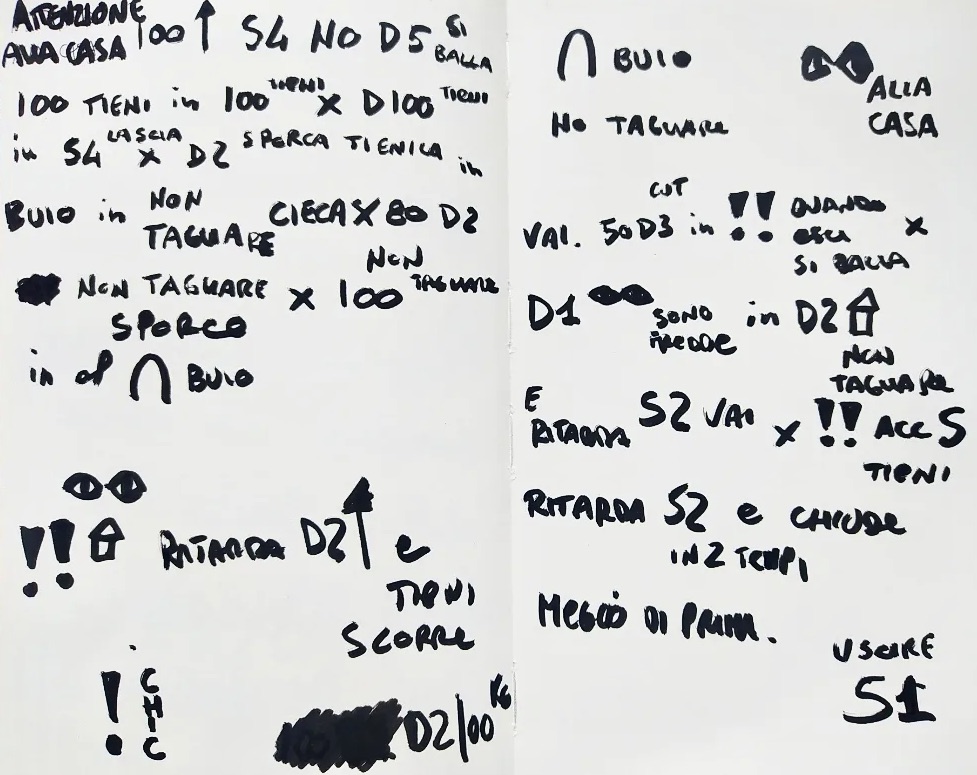 ATENZIONE
ALLA CASA 100 ↑ S4 NO D5 SI BALLA
100 TIENI in 100 TIENI X D100 TIENI
in S4 LASCIA X D2 SPORCA TIENILA in
BUIO in NON TAGLIARE CIECA X 80 D2
NON TAGLIARE SPORCO X 100 NON TAGLIARE
in BUIO
!! RITARDA D2 ↑ e
TIENI
SCORRE
! CHIC
D2/100 KG
BUIO
ALLA
CASA
NO TAGLIARE
VAI. 50 D3 CUT in !! QUANDO ESCI X
SI BALLA
D1 SONO FREDDE in D2
NON
TAGLIARE
E
RITARDA S2 VAI X !! ACC S
TIENI
RITARDA S2 e CHIUDE
IN 2 TEMPI
MEGLIO DI PRIMA.
USCIRE
S1